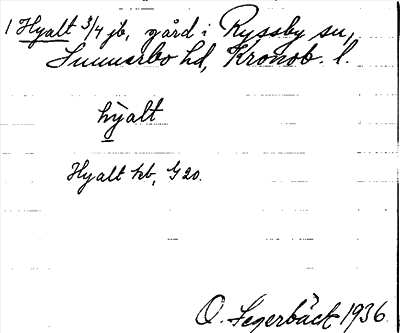 1 Hyalt 3/4 jb, gård i Ryssby sn,
Sunnerbo hd, Kronob. l.
hy̆alt
Hyalt kb, G 20.
O. Segerbäck 1936.